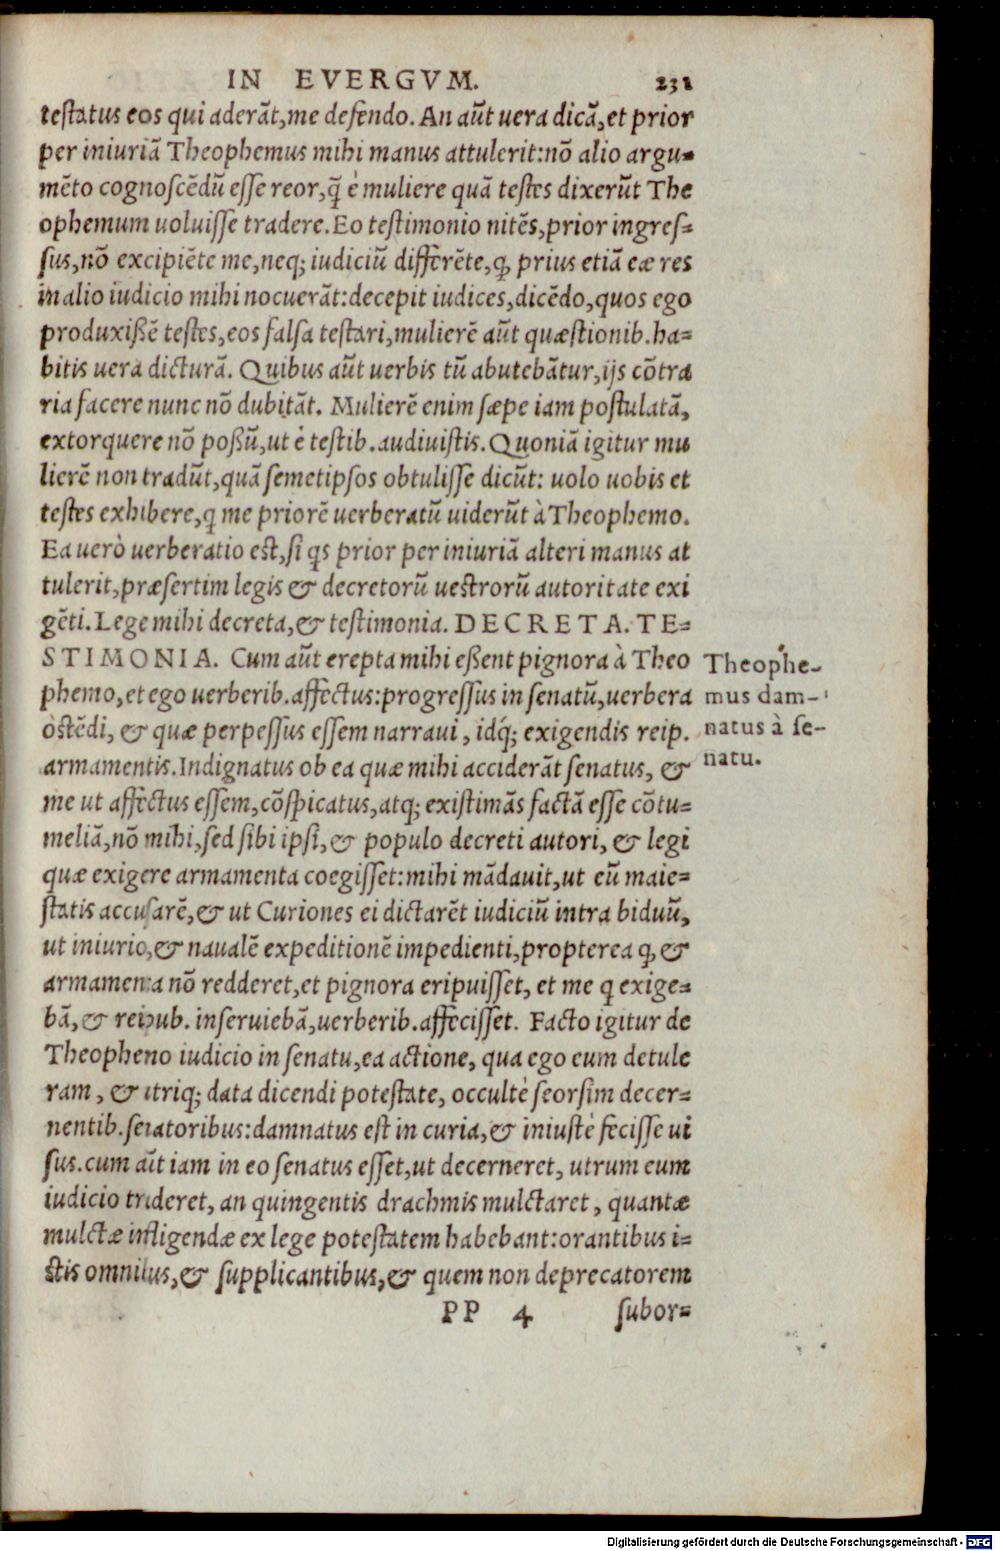 IN EVERGVM. 231
testatus eos qui aderāt, me defendo. An aūt uera dicā, et prior
per iniuriā Theophemus mihi manus attulerit: nō alio argu-
mēto cognoscēdū esse reor, q̄ è muliere quā testes dixerūt The
ophemum uoluisse tradere. Eo testimonio nitēs, prior ingres-
sus, nō excipiēte me, neq; iudiciū differēte, q, prius etiā eæ res
in alio iudicio mihi nocuerāt: decepit iudices, dicēdo, quos ego
produxißē testes, eos falsa testari, mulierē aūt quæstionib. ha-
bitis uera dicturā. Quibus aūt uerbis tū abutebātur, ijs cōtra
ria facere nunc nō dubitāt. Mulierē enim sæpe iam postulatā,
extorquere nō poßū, ut è testib. audiuistis. Quoniā igitur mu
lierē non tradūt, quā semetipsos obtulisse dicūt: uolo uobis et
testes exhibere, q me priorē uerberatū uiderūt à Theophemo.
Ea uerò uerberatio est, si qs prior per iniuriā alteri manus at
tulerit, præsertim legis & decretorū uestrorū autoritate exi
gēti. Lege mihi decreta, & testimonia. DECRETA. TE-
STIMONIA. Cum aūt erepta mihi eßent pignora à Theo
phemo, et ego uerberib. affectus: progressus in senatū, uerbera
ostēdi, & quæ perpessus essem narraui, idq́; exigendis reip.
armamentis. Indignatus ob ea quæ mihi acciderāt senatus, &
me ut affectus essem, cōspicatus, atq; existimās factā esse cōtu-
meliā, nō mihi, sed sibi ipsi, & populo decreti autori, & legi
quæ exigere armamenta coegisset: mihi mādauit, ut eū maie-
statis accusarē, & ut Curiones ei dictarēt iudiciū intra biduū,
ut iniurio, & naualē expeditionē impedienti, propterea q, &
armamenta nō redderet, et pignora eripuisset, et me q exige-
bā, & reipub. inseruiebā, uerberib. affecisset. Facto igitur de
Theopheno iudicio in senatu, ea actione, qua ego eum detule
ram, & utriq; data dicendi potestate, occultè seorsim decer-
nentib. senatoribus: damnatus est in curia, & iniustè fecisse ui
sus. cum aūt iam in eo senatus esset, ut decerneret, utrum eum
iudicio traderet, an quingentis drachmis mulctaret, quantæ
mulctæ infligendæ ex lege potestatem habebant: orantibus i-
stis omnibus, & supplicantibus, & quem non deprecatorem
PP 4 subor-
Theophe-
mus dam-
natus à se-
natu.
Digitalisierung gefördert durch die Deutsche Forschungsgemeinschaft - DFG